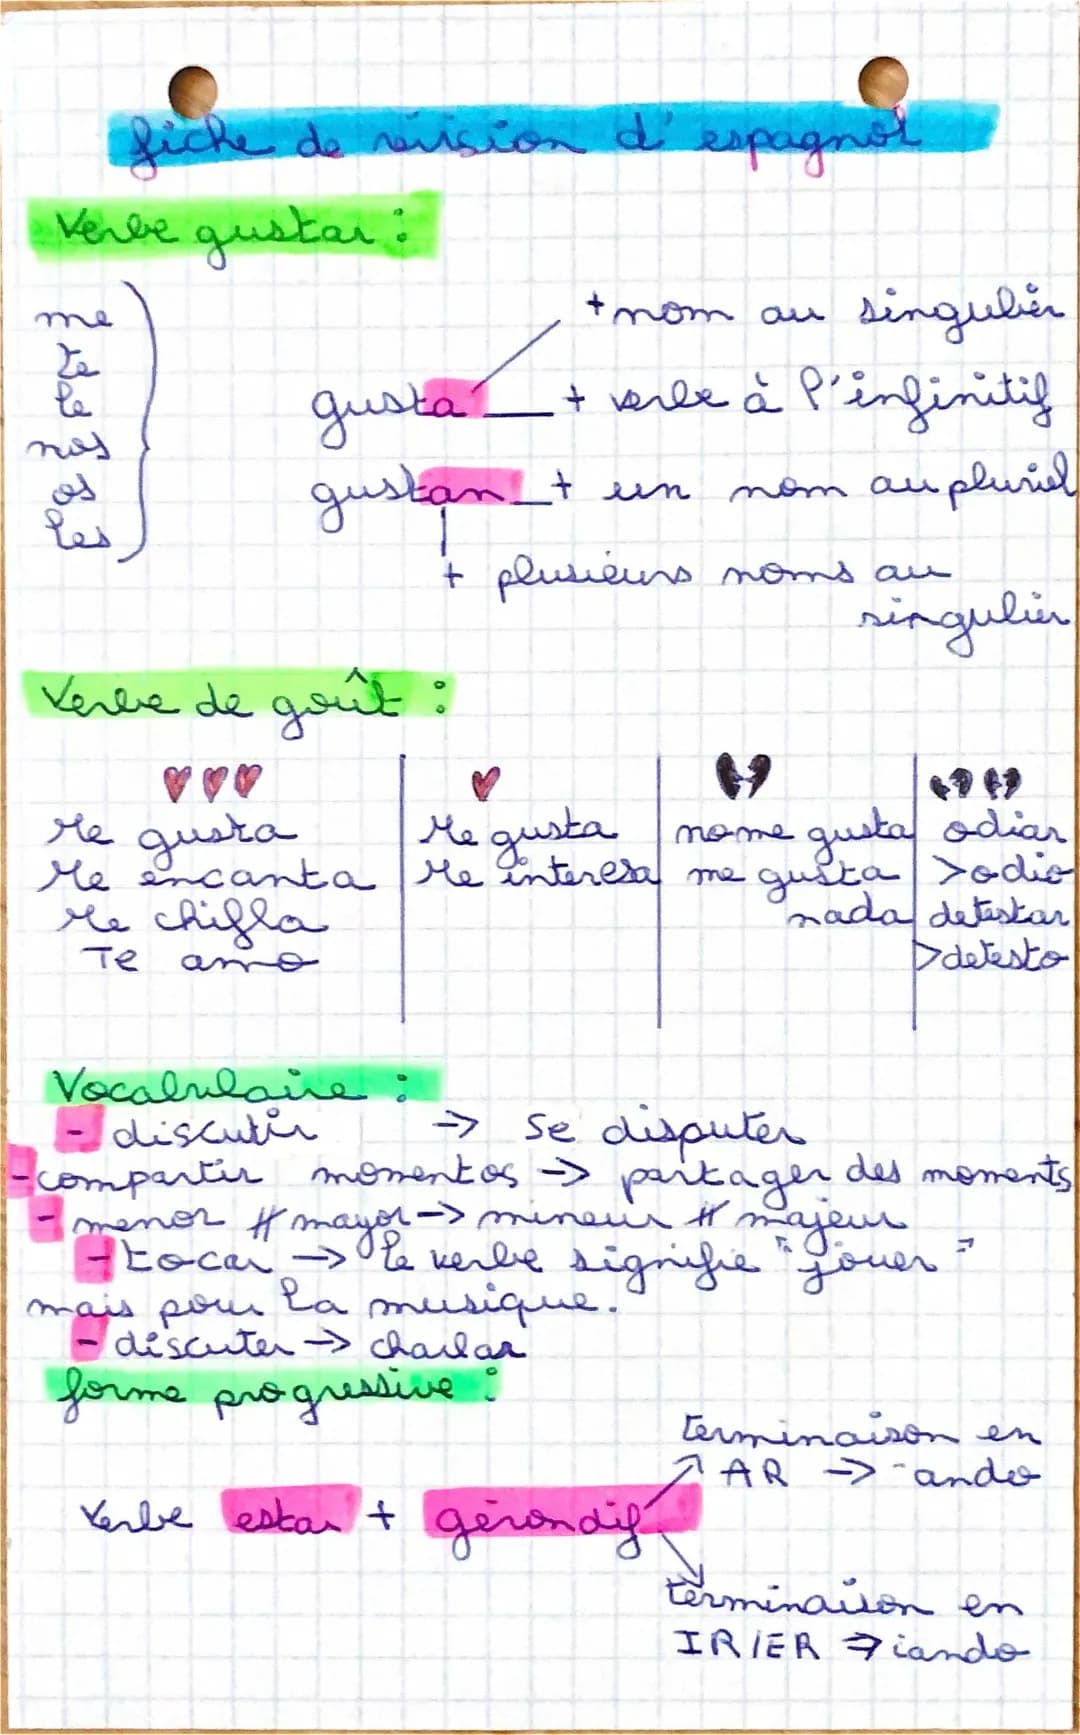 fiche de révision d'espagnol
Verbe gustar :
me
te
le
nos
os
les
+ nom au singulier
gusta + verbe à l'infinitif
gustan + un nom au pluriel
+ plusieurs noms au
singulier
Verbe de goût :
Me gusta
Me encanta
Me chifla
Te amo
Me gusta
Me interesa
no me gusta
me gusta
nada
odiar
>odio
detestar
>detesto
Vocabulaire :
- discutir -> se disputer
- compartir momentos -> partager des moments
- menor # mayor -> mineur # majeur
- tocar -> le verbe signifie "jouer"
mais pour la musique.
- discuter -> charlar
forme progressive :
terminaison en
AR -> -ando
Verbe estar + gérondif
terminaison en
IR/ER -> iando